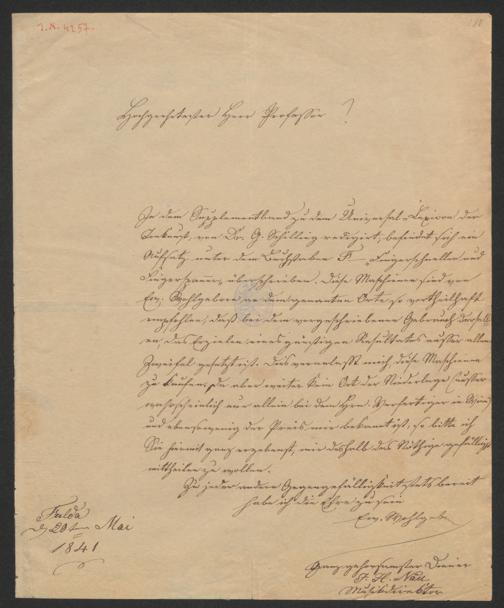 I.N. 4257.
Hochgeehrtester Herr Professor!
In dem Supplementband zu dem Universal-Lexicon der
Tonkunst, von Dr. G. Schilling redigirt, befindet sich ein
Aufsatz unter dem Buchstaben F. Fingerschneller und
Fingerspanner, überschrieben. Diese Maschienen sind von
Ew. Wohlgeboren an dem genannten Orte so vortheilhaft
empfohlen, daß bei dem vorgeschriebenen Gebrauch
en, das Erzielen eines günstigen Resultates außer allem
Zweifel gesetzt ist. Dies veranlaßt mich, diese Maschienen
zu kaufen; da aber weiter kein Ort der Niederlage (außer
wahrscheinlich nur allein bei dem Hrn. Verfertiger in Wien)
und ebensowenig der Preis mir bekannt ist, so bitte ich
Sie hiermit ganz ergebenst, mir deshalb das Nöthige gefälligst
mittheilen zu wollen.
Zu jeder andern Gegengefälligkeit stets bereit
habe ich die Ehre zu sein
Ew. Wohlgeb.
Fulda
d. 20ten Mai
1841
Ganz gehorsamster Diener
F. H. Nau
Musikdirector